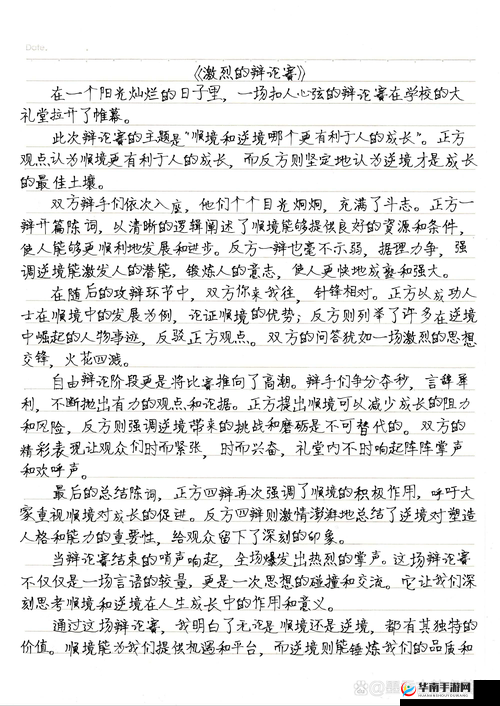 Date.
《激烈的辩论赛》
在一个阳光灿烂的日子里，一场扣人心弦的辩论赛在学校的大
礼堂拉开了帷幕。
此次辩论赛的主题是“顺境和逆境哪个更有利于人的成长”。正方
观点认为顺境更有利于人的成长，而反方则坚定地认为逆境才是成长
的最佳土壤。
双方辩手们依次入座，他们个个目光炯炯，充满了斗志。正方一
辩开篇陈词，以清晰的逻辑阐述了顺境能够提供良好的资源和条件，
使人能够更顺利地发展和进步。反方一辩也毫不示弱，据理力争，强
调逆境能激发人的潜能，锻炼人的意志，使人更快地成熟和强大。
在随后的攻辩环节中，双方你来我往，针锋相对。正方以成功人
士在顺境中的发展为例，论证顺境的优势；反方则列举了许多在逆境
中崛起的人物事迹，反驳正方观点。双方的问答犹如一场激烈的思想
交锋，火花四溅。
自由辩论阶段更是将比赛推向了高潮。辩手们争分夺秒，言辞犀
利，不断抛出有力的观点和论据。正方提出顺境可以减少成长的阻力
和风险，反方则强调逆境带来的挑战和磨砺是不可替代的。双方的
精彩表现让观众们时而紧张，时而兴奋，礼堂内不时响起阵阵掌声
和欢呼声。
最后的总结陈词，正方四辩再次强调了顺境的积极作用，呼吁大
家重视顺境对成长的促进。反方四辩则激情澎湃地总结了逆境对塑造
人格和能力的重要性，给观众留下了深刻的印象。
当辩论赛结束的哨声响起，全场爆发出热烈的掌声。这场辩论赛
不仅仅是一场言语的较量，更是一次思想的碰撞和交流。它让我们深
刻思考顺境和逆境在人生成长中的作用和意义。
通过这场辩论赛，我明白了无论是顺境还是逆境，都有其独特的
价值。顺境能为我们提供机遇和平台，而逆境则能锤炼我们的品质和
华南手游网